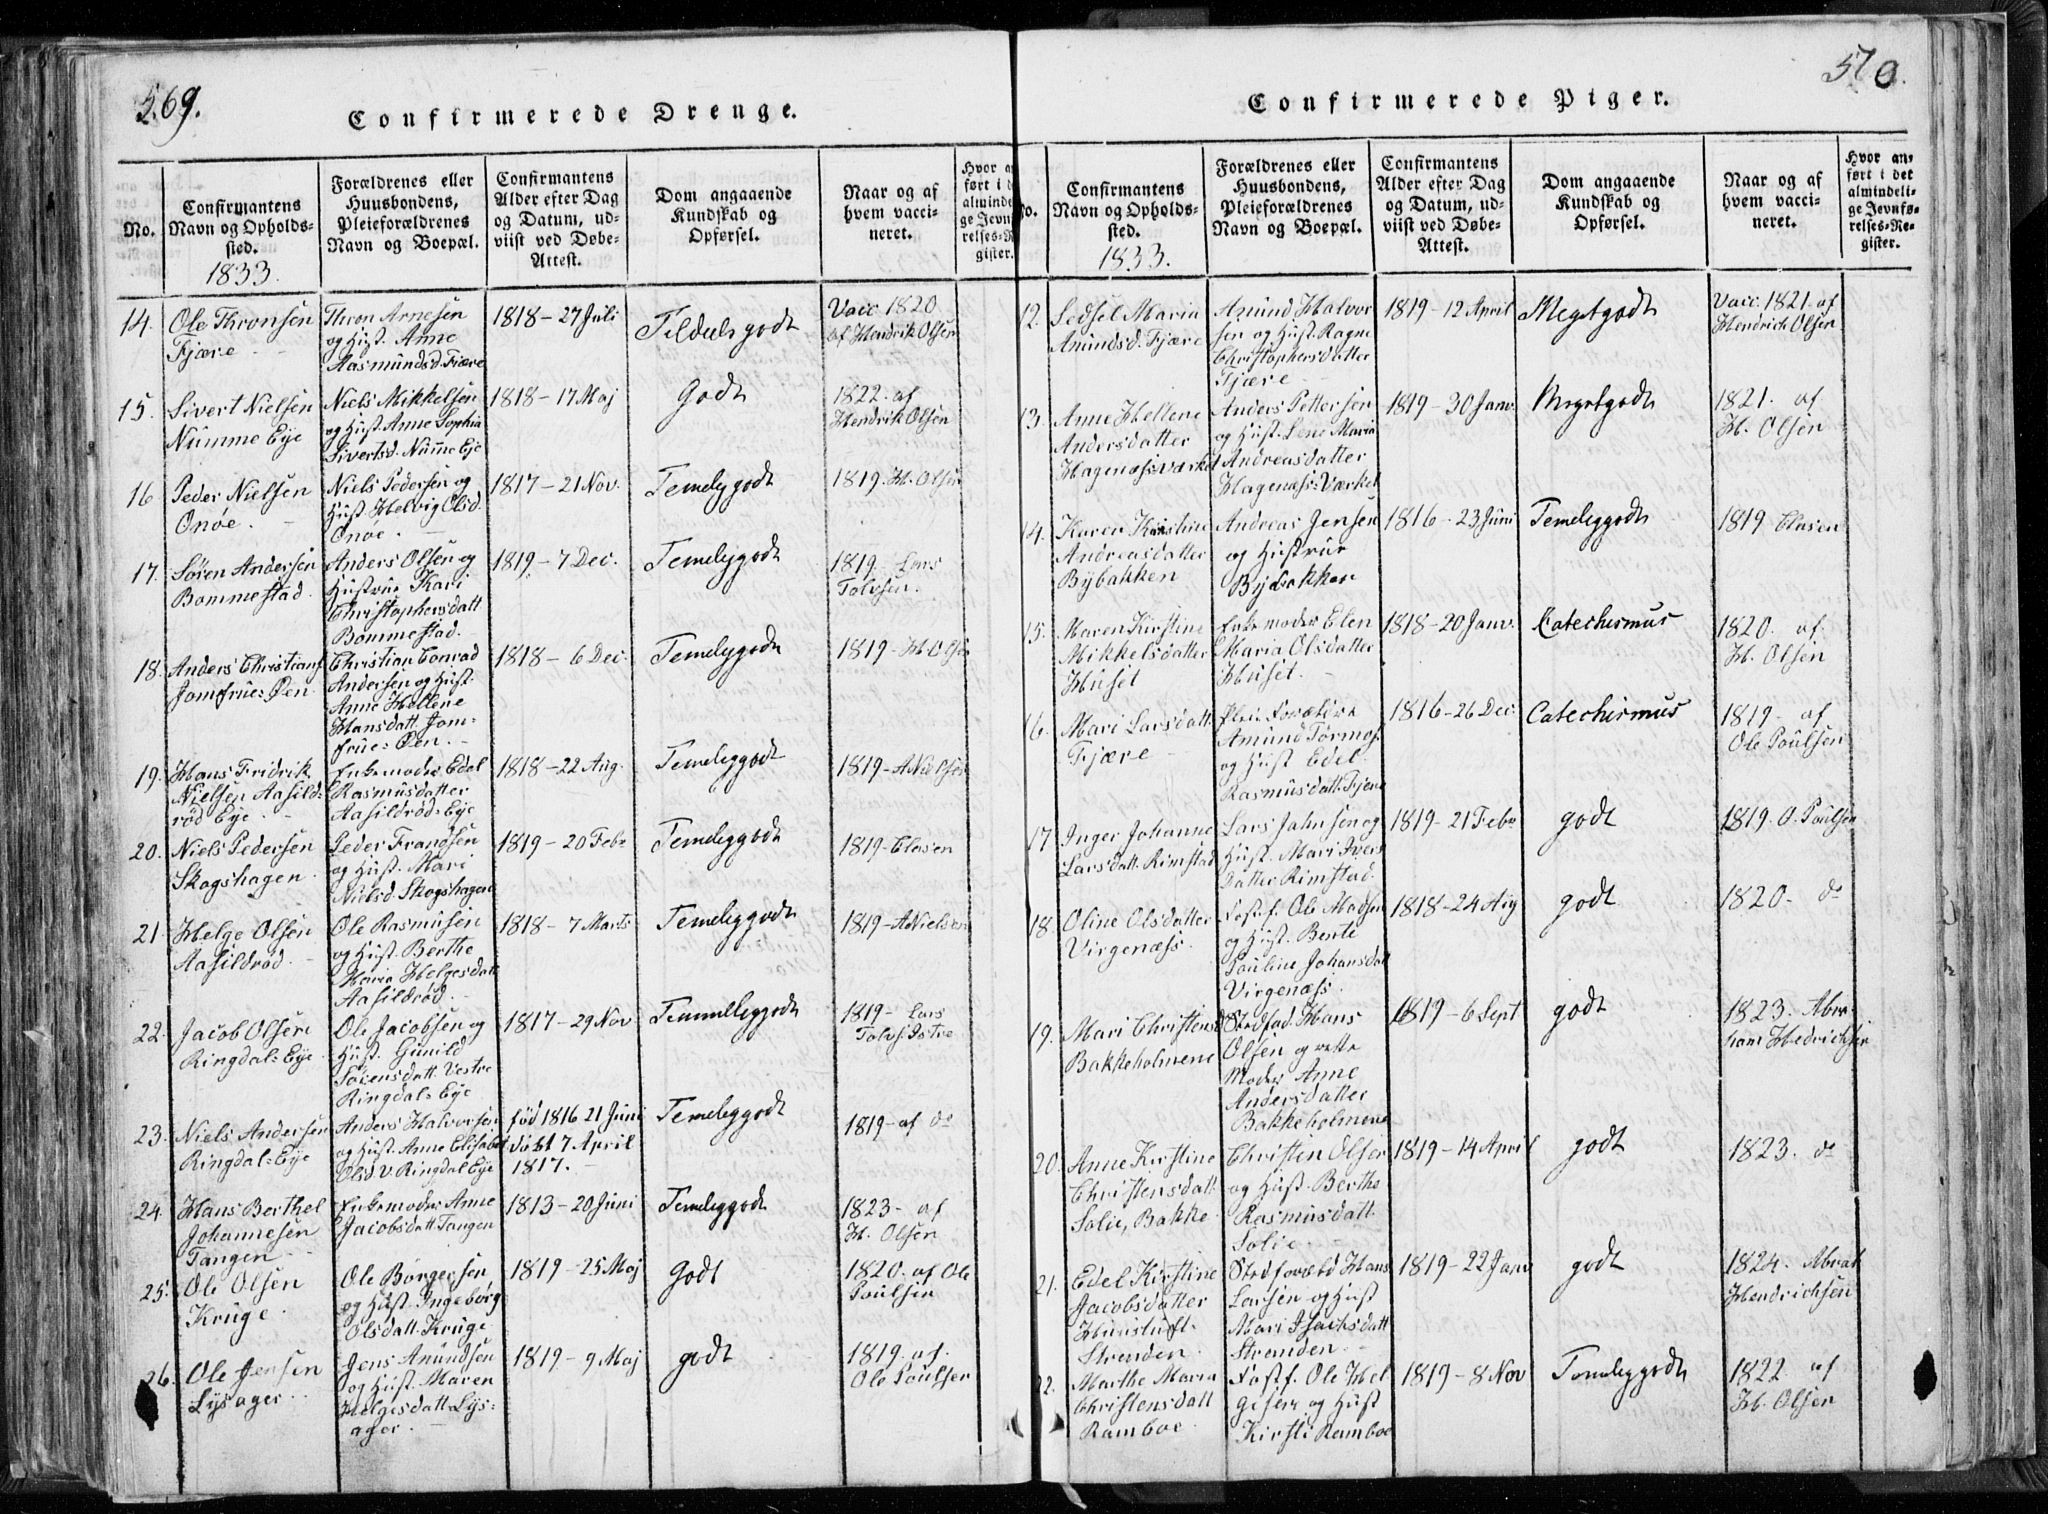 569.
Confirmerede Drenge.
No.
Confirmantens
Navn og Opholds-
sted.
1833.
Forældrenes eller
Huusbondens,
Pleieforældrenes
Navn og Boepæl.
Confirmantens
Alder efter Dag
og Datum, ud-
viist ved Døbe-
Attest.
Dom angaaende
Kundskab og
Opførsel.
Naar og af
hvem vacci-
neret.
14.
Ole Thronsen
Fjære
Thron Arnesen
og Hust. Anne
Aasmundsd. Fjære
1818 - 27 Juli
Tildeels godt
Vacc 1820
af Hendrik Olsen
15.
Sivert Nielsen
Numme Eye
Niels Mikkelsen
og Hust. Anne Sophia
Sivertsd. Numme Eje
1818 - 17 Maj
Godt
1822. af
Hendrik Olsen
16
Peder Nielsen
Onøe.
Niels Pedersen og
Hust. Helvig Olsd.
Onøe.
1817 - 21 Nov.
Temelig godt
1819. H. Olsen
17.
Sören Andersen
Bommestad.
Anders Olsen og
Hustrue Kari
Christophersdatt.
Bommestad.
1819 - 7 Dec.
Temeliggodt
1819 - Lars
Tolvsen.
18.
Anders Christians
Jomfrue=Øen.
Christian Conrad
Andersen og Hust.
Anne Hellene
Hansdatt. Jom-
frue=Øen.
1818 - 6 Dec.
Temeliggodt
1819 - H Olsen
19.
Hans Fridrik
Nielsen Aasild=
röd Eye.
Enkemoder Edel
Rasmusdatter
Aasildröd=Eye
1818 - 22 Aug.
Temeliggodt
1819 - A Nielsen
20.
Niels Pedersen
Skogshagen.
Peder Frandsen
og Hust. Mari
Nielsd. Skogshagen
1819 - 20 Febr
Temeliggodt
1819 - Clasen
21
Helge Olsen
Aasildröd.
Ole Rasmusen
og Hust. Berthe
Maria Helgesdatt
Aasildröd.
1818 - 7 Marts
Temeliggodt
1819 - A Nielsen
22.
Jacob Olsen
Ringdal=Eye.
Ole Jacobsen og
Hust. Gunild
Sörensdatt. Vestre
Ringdal=Eye
1817 - 29 Nov
Temmeliggodt
1819 - Lars
Tolvs. Istre
23.
Niels Andersen
Ringdal=Eye
Anders Halvorsen
og Hust. Anne Elisabet
Olsd V Ringdal Eye
föd 1816 21 Juni
döbt 7 April
1817.
Temeliggodt
1819 - af do
24.
Hans Berthel
Johannesen
Tangen
Enkemoder Anne
Jacobsdatt Tangen
1813 - 20 Juni
Temeliggodt
1823 - af
H. Olsen
25.
Ole Olsen
Kruge.
Ole Börgersen
og Hust. Ingeborg
Olsdatt. Kruge
1819 - 25 Maj
Godt
1820. af Ole
Poulsen
26.
Ole Jensen
Lysager.
Jens Amundsen
og Hust. Maren
Helgesdatt. Lys-
ager.
1819 - 9 Maj
godt
1819. af.
Ole Poulsen
570.
Confirmerede Piger.
Confirmantens
Navn og Opholds-
sted.
1833.
Forældrenes eller
Huusbondens,
Pleieforældrenes
Navn og Boepæl.
Confirmantens
Alder efter Dag
og Datum, ud-
viist ved Døbe-
Attest.
Dom angaaende
Kundskab og
Opførsel.
Naar og af
hvem vacci-
neret.
Hvor an-
ført i det
almindeli-
ge Jevnfø-
relses-Re-
gister.
12.
Sedsel Maria
Amundsd. Fjære
Amund Halvor
sen og Hust. Ragne
Christophersdatter
Fjære
1819 - 12 April
Megetgodt
Vacc. 1821. af
Hendrich Olsen
13.
Anne Hellene
Andersdatter
Hagenæss=værket
Anders Pettersen
og Hust. Lene Maria
Andreasdatter
Hagenæss=Værket
1819 - 30 Janv.
Megetgodt
1821. af
H. Olsen
14.
Karen Kirstine
Andreasdatter
Bybakken
Andreas Jensen
og Hustrue
Bybakken
1816 - 23 Juni
Temeliggodt
1819 Clasen
15.
Maren Kirstine
Mikkelsdatter
Huset
Enkemoder Elen
Maria Olsdatter
Huset.
1818 - 20 Janv.
Catechismus
1820. af.
H. Olsen
16.
Mari Larsdatt.
Fjære
Amund Tormos.
og Hust Edel
Rasmusdatt. Fjære
1816 - 26 Dec.
Catechismus
1819 - af
Ole Poulsen
17
Inger Johanne
Larsdatt. Rimstad
Lars Jahnsen og
Hust. Mari Ivers
datter Rimstad.
1819 - 21 Febr
godt
1819. O. Poulsen
18
Oline Olsdatter
Virgenæss.
Fostf. Ole Madsen
og Hust. Bente
Pouline Johansdatt
Virgenæss.
1818 - 24 Aug
godt
1820. do
19.
Mari Christensd
Bakkeholmene
Stedfad. Hans
Olsen og rette
Moder Anne
Andersdatter
Bakkeholmene
1819 - 6 Sept
godt
1823. Abra-
ham Hedrichsen
20.
Anne Kirstine
Christensdatt.
Solie, Bakke
Christen Olsen
og Hust. Berthe
Rasmusdatt.
Solie
1819 - 14 April
godt
1823. do
21.
Edel Kirstine
Jacobsdatter
Stranden.
Larsen og Hust
Mari Isachsdatt
Stranden.
1819 - 22 Janv
godt
1824. Abrah
Hendrichsen
22.
Marthe Maria
Christensdatt
Ramboe
Fostf. Ole Hel
gesen og Hust
Kirsti Ramboe
1819 - 8 Nov
Temeliggodt
1822 af
H. Olsen